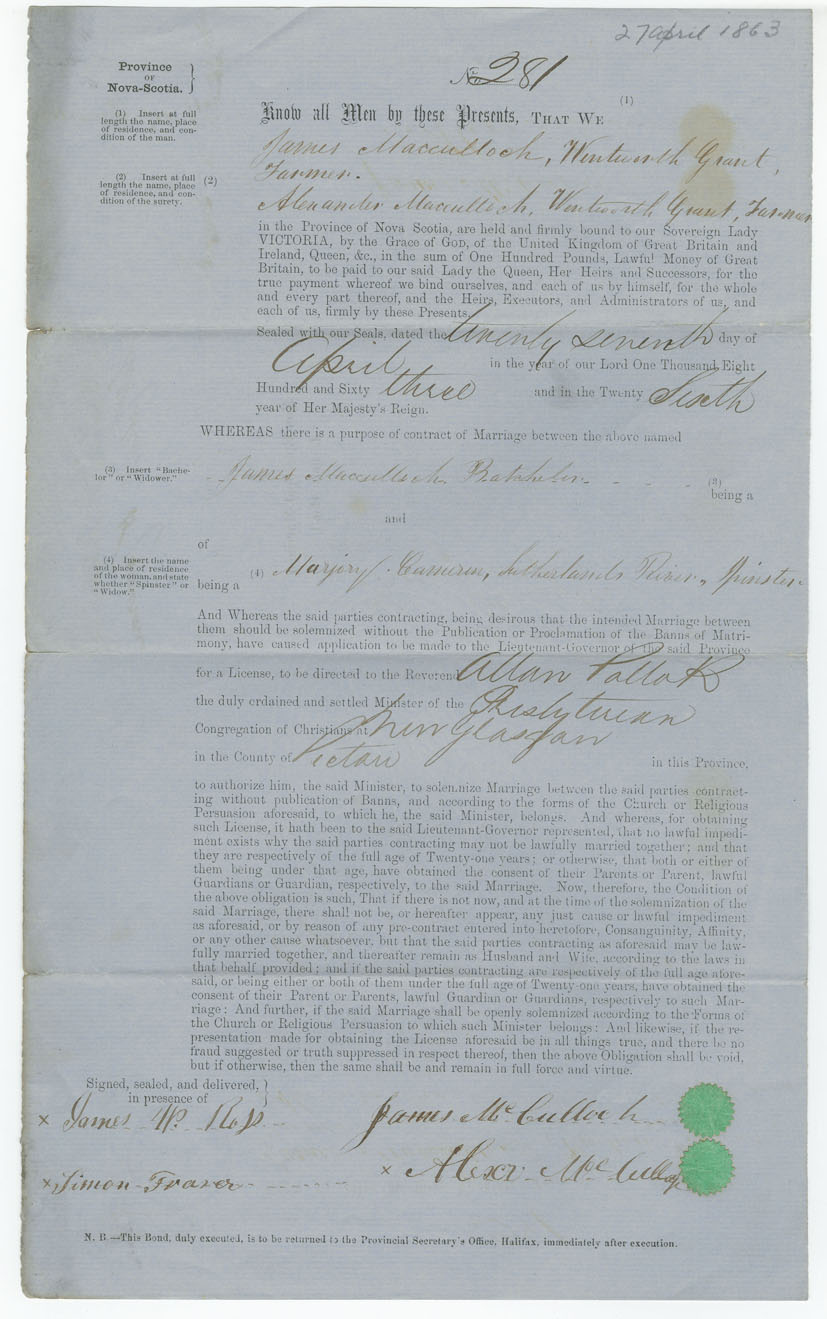 27 April 1863
Province
OF
Nova-Scotia.
No 281
(1) Insert at full
length the name, place
of residence, and con-
dition of the man.
(1)
Know all Men by these Presents, THAT WE
James Macculloch, Wentworth Grant,
Farmer.
(2) Insert at full
length the name, place
of residence, and con-
dition of the surety.
(2)
Alexander Macculloch, Wentworth Grant, Farmer
in the Province of Nova Scotia, are held and firmly bound to our Sovereign Lady
VICTORIA, by the Grace of God, of the United Kingdom of Great Britain and
Ireland, Queen, &c., in the sum of One Hundred Pounds, Lawful Money of Great
Britain, to be paid to our said Lady the Queen, Her Heirs and Successors, for the
true payment whereof we bind ourselves, and each of us by himself, for the whole
and every part thereof, and the Heirs, Executors, and Administrators of us, and
each of us, firmly by these Presents.
Sealed with our Seals, dated the twenty seventh day of
April in the year of our Lord One Thousand Eight
Hundred and Sixty three and in the Twenty Sixth
year of Her Majesty's Reign.
WHEREAS there is a purpose of contract of Marriage between the above named
(3) Insert "Bache-
lor" or "Widower."
James Macculloch Batchelor - - - - (3)
being a
and
of
(4) Insert the name
and place of residence
of the woman, and state
whether "Spinster" or
"Widow."
(4) Marjory Cameron, Sutherlands River, Spinster
being a
And Whereas the said parties contracting, being desirous that the intended Marriage between
them should be solemnized without the Publication or Proclamation of the Banns of Matri-
mony, have caused application to be made to the Lieutenant-Governor of the said Province
for a License, to be directed to the Reverend Allan Pollok
the duly ordained and settled Minister of the Presbyterian
Congregation of Christians at New Glasgow
in the County of Pictou in this Province,
to authorize him, the said Minister, to solemnize Marriage between the said parties contract-
ing without publication of Banns, and according to the forms of the Church or Religious
Persuasion aforesaid, to which he, the said Minister, belongs. And whereas, for obtaining
such License, it hath been to the said Lieutenant-Governor represented, that no lawful impedi-
ment exists why the said parties contracting may not be lawfully married together; and that
they are respectively of the full age of Twenty-one years; or otherwise, that both or either of
them being under that age, have obtained the consent of their Parents or Parent, lawful
Guardians or Guardian, respectively, to the said Marriage. Now, therefore, the Condition of
the above obligation is such, That if there is not now, and at the time of the solemnization of the
said Marriage, there shall not be, or hereafter appear, any just cause or lawful impediment
as aforesaid, or by reason of any pre-contract entered into heretofore, Consanguinity, Affinity,
or any other cause whatsoever, but that the said parties contracting as aforesaid may be law-
fully married together, and thereafter remain as Husband and Wife, according to the laws in
that behalf provided; and if the said parties contracting are respectively of the full age afore-
said, or being either or both of them under the full age of Twenty-one years, have obtained the
consent of their Parent or Parents, lawful Guardian or Guardians, respectively to such Mar-
riage: And further, if the said Marriage shall be openly solemnized according to the Forms of
the Church or Religious Persuasion to which such Minister belongs: And likewise, if the re-
presentation made for obtaining the License aforesaid be in all things true, and there be no
fraud suggested or truth suppressed in respect thereof, then the above Obligation shall be void,
but if otherwise, then the same shall be and remain in full force and virtue.
Signed, sealed, and delivered,
in presence of
x James W. Ross James McCulloch
x Simon Fraser x Alexr McCulloch
N. B.—This Bond, duly executed, is to be returned to the Provincial Secretary's Office, Halifax, immediately after execution.